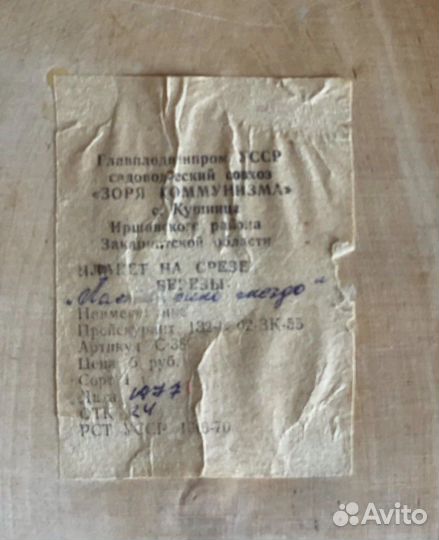 Главплодвинпром УССР
садоводческий совхоз
«ЗОРЯ КОММУНИЗМА»
с. Кушница
Иршавского района
Закарпатской области
ПЛАКЕТ НА СРЕЗЕ
БЕРЕЗЫ
гнездо"
Прейскурант 132-
02-ЗК-55
Артикул С-38
Цена 5 руб.
Сорт 1
Дата 1977
ОТК 24
РСТ УССР
-70
Avito